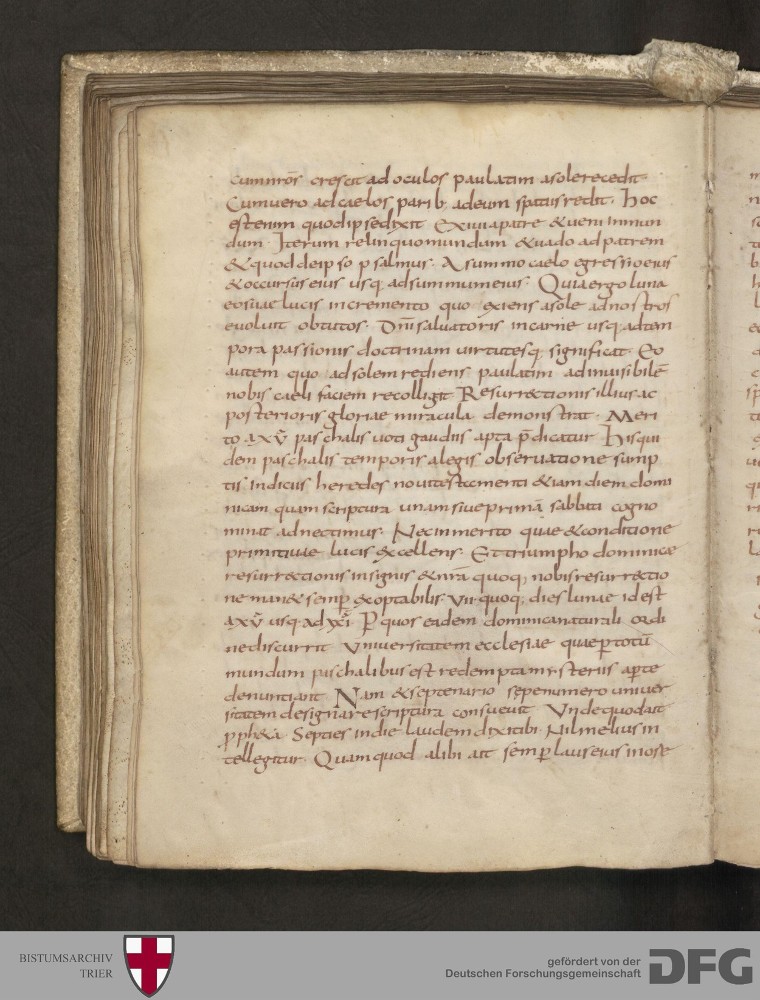 cum nr̄os crescit ad oculos paulatim a sole recedit
Cum vero ad caelos parib; ad eum spatiis redit. Hoc
est enim quod ipse dixit Exivi a patre & veni in mun
dum. Iterum relinquo mundum & vado ad patrem
& quod de ipso psalmus. A summo caelo egressio eius
& occursus eius usq; ad summum eius. Quia ergo luna
eo suae lucis incremento quo exiens a sole ad nostros
evoluit obtutos. Dn̄i salvatoris in carne usq; ad tem
pora passionis doctrinam virtutesq; significat. Eo
autem quo ad solem rediens paulatim ad invisibilē
nobis caeli faciem recolligit Resurrectionis illius ac
posterioris gloriae miracula demonstrat. Meri
to a xv paschalis voti gaudiis apta p̄dicatur His qui
dem paschalis temporis a legis observatione sump
tis indiciis heredes novi testamenti &iam diem domi
nicam quam scriptura unam sive primā sabbati cogno
minat adnectimus. Nec inmerito quae & conditione
primitivae lucis excellens. Et triumpho dominicae
resurrectionis insignis & nr̄a quoq; nobis resurrectio
ne man& semp exoptabilis. VII quoq; dies lunae id est
a xv usq; ad xxi. P quos eadem dominica naturali ordi
ne discurrit Universitatem ecclesiae quae p totū
mundum paschalibus est redempta mysteriis apte
denuntiant Nam & septenario sepenumero univer
sitatem designare scriptura consuevit Unde quod ait
pph&a. Septies in die laudem dixi tibi. Nil melius in
tellegitur. Quam quod alibi ait semp laus eius in ore
BISTUMSARCHIV
TRIER
gefördert von der
Deutschen Forschungsgemeinschaft
DFG